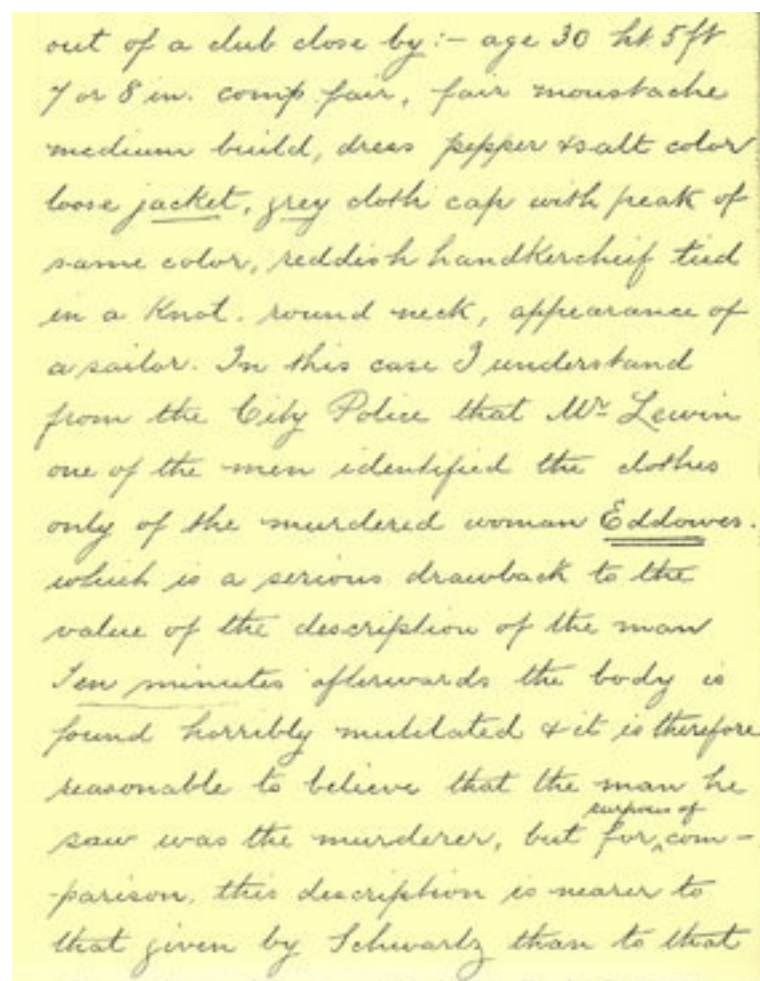 out of a club close by:- age 30 ht. 5 ft
7 or 8 in. comp. fair, fair moustache
medium build, dress pepper & salt color
loose jacket, grey cloth cap with peak of
same color, reddish handkercheif tied
in a knot. round neck, appearance of
a sailor. In this case I understand
from the City Police that Mr. Lewin
one of the men identified the clothes
only of the murdered woman Eddowes.
which is a serious drawback to the
value of the description of the man
Ten minutes afterwards the body is
found horribly mutilated & it is therefore
reasonable to believe that the man he
saw was the murderer, but for purposes of com-
parison, this description is nearer to
that given by Schwartz than to that